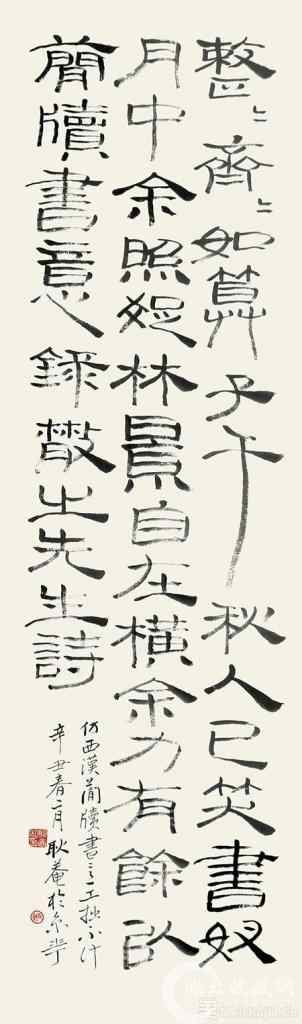 整〻齊〻如算子千秋人已笑書奴
月中余照林景自在橫余力有餘以
簡牘書意錄散之先生詩
仿西漢簡牘書之工拙不計
辛丑春二月耿菴於京華